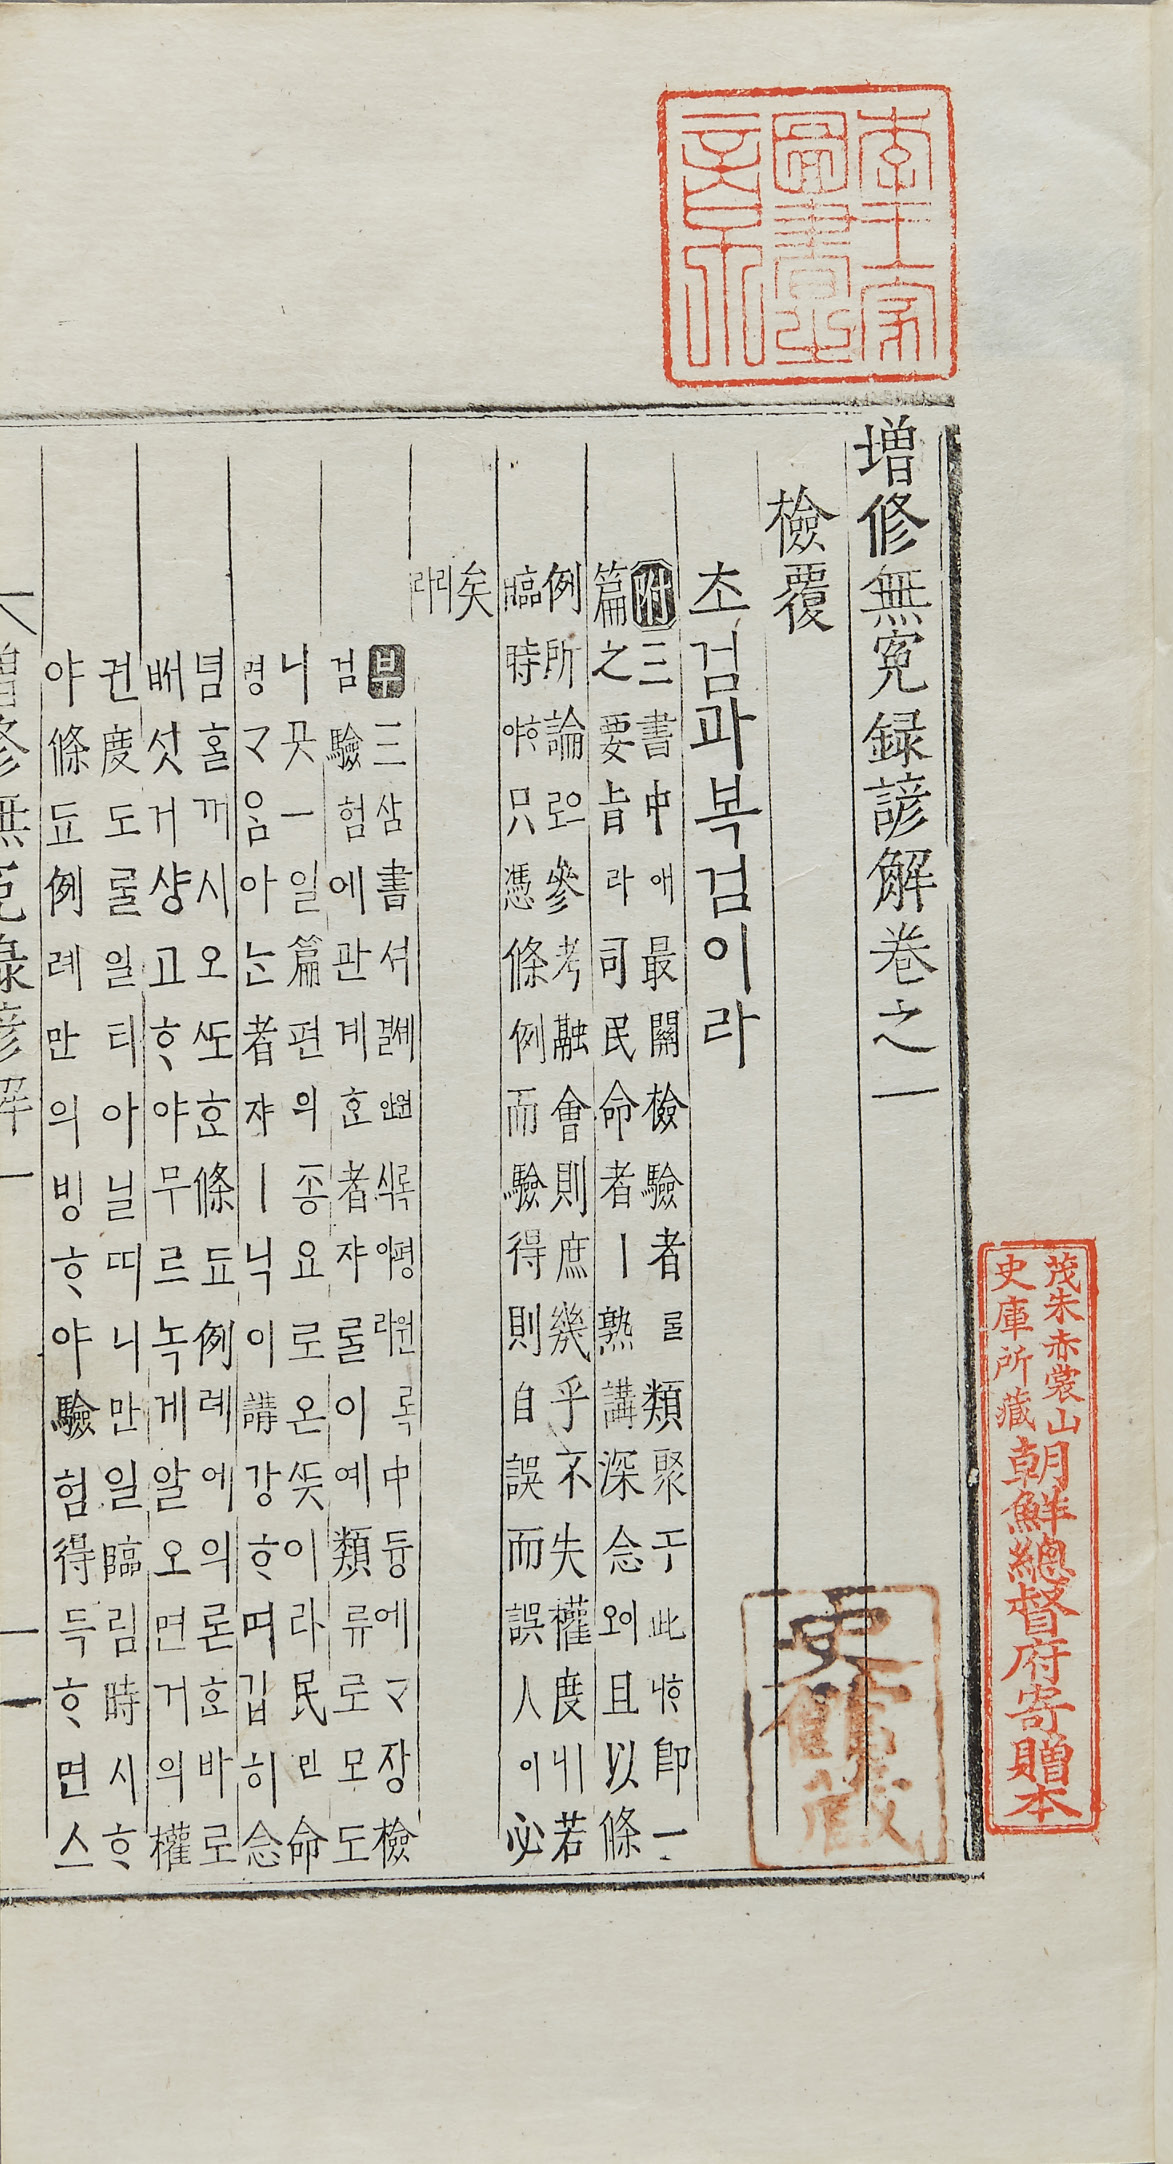 李王家圖書之章
增修無冤錄諺解卷之一
檢覆
초검과복검이라
附三書中애最關檢驗者룰類聚于此ᄒᆞ니卽一
篇之要旨라司民命者ㅣ熟講深念이오且以條
例所論으로參考融會則庶幾乎不失權度ㅣ니若
臨時ᄒᆞ야只憑條例而驗得則自誤而誤人이必
矣리라
부三삼書서세원록평원록결안식이라中듕에ᄀᆞ장檢
검驗험에관계호者쟈룰이예類류로모도
니곳一일篇편의종요로온ᄯᅳᆺ이라民민命
명ᄀᆞ음아ᄂᆞᆫ者쟈ㅣ닉이講강ᄒᆞ며깁히念
념홀꺼시오ᄯᅩ호條됴例례에의론호바로
ᄡᅥ섯거샹고ᄒᆞ야무르녹게알오면거의權
권度도룰일티아닐띠니만일臨림時시ᄒᆞ
야條됴例례만의빙ᄒᆞ야驗험得득ᄒᆞ면스
增修無冤錄諺解一
一
茂朱赤裳山
史庫所藏
朝鮮總督府寄贈本
史館藏